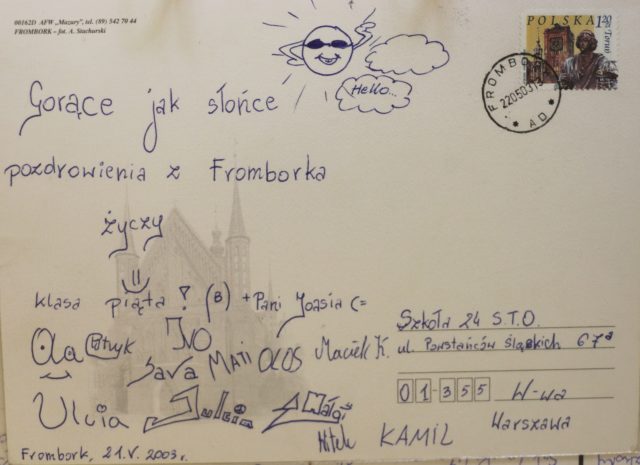 00162D AFW „Mazury”, tel. (89) 542 70 44
FROMBORK – fot. A. Stachurski
POLSKA 1,20 zł
Toruń
FROMBORK
220503
* A D *
Hello...
Gorące jak słońce
pozdrowienia z Fromborka
życzy
klasa piąta ! (B) + Pani Joasia (=
Ola Patryk IVO Sara MATI OLOS Maciek K.
Ulcia Julcia Małgoś
KAMIL
Frombork, 21.V. 2003r.
Szkoła 24 S.T.O.
ul. Powstańców Śląskich 67a
01-355 W-wa
Warszawa